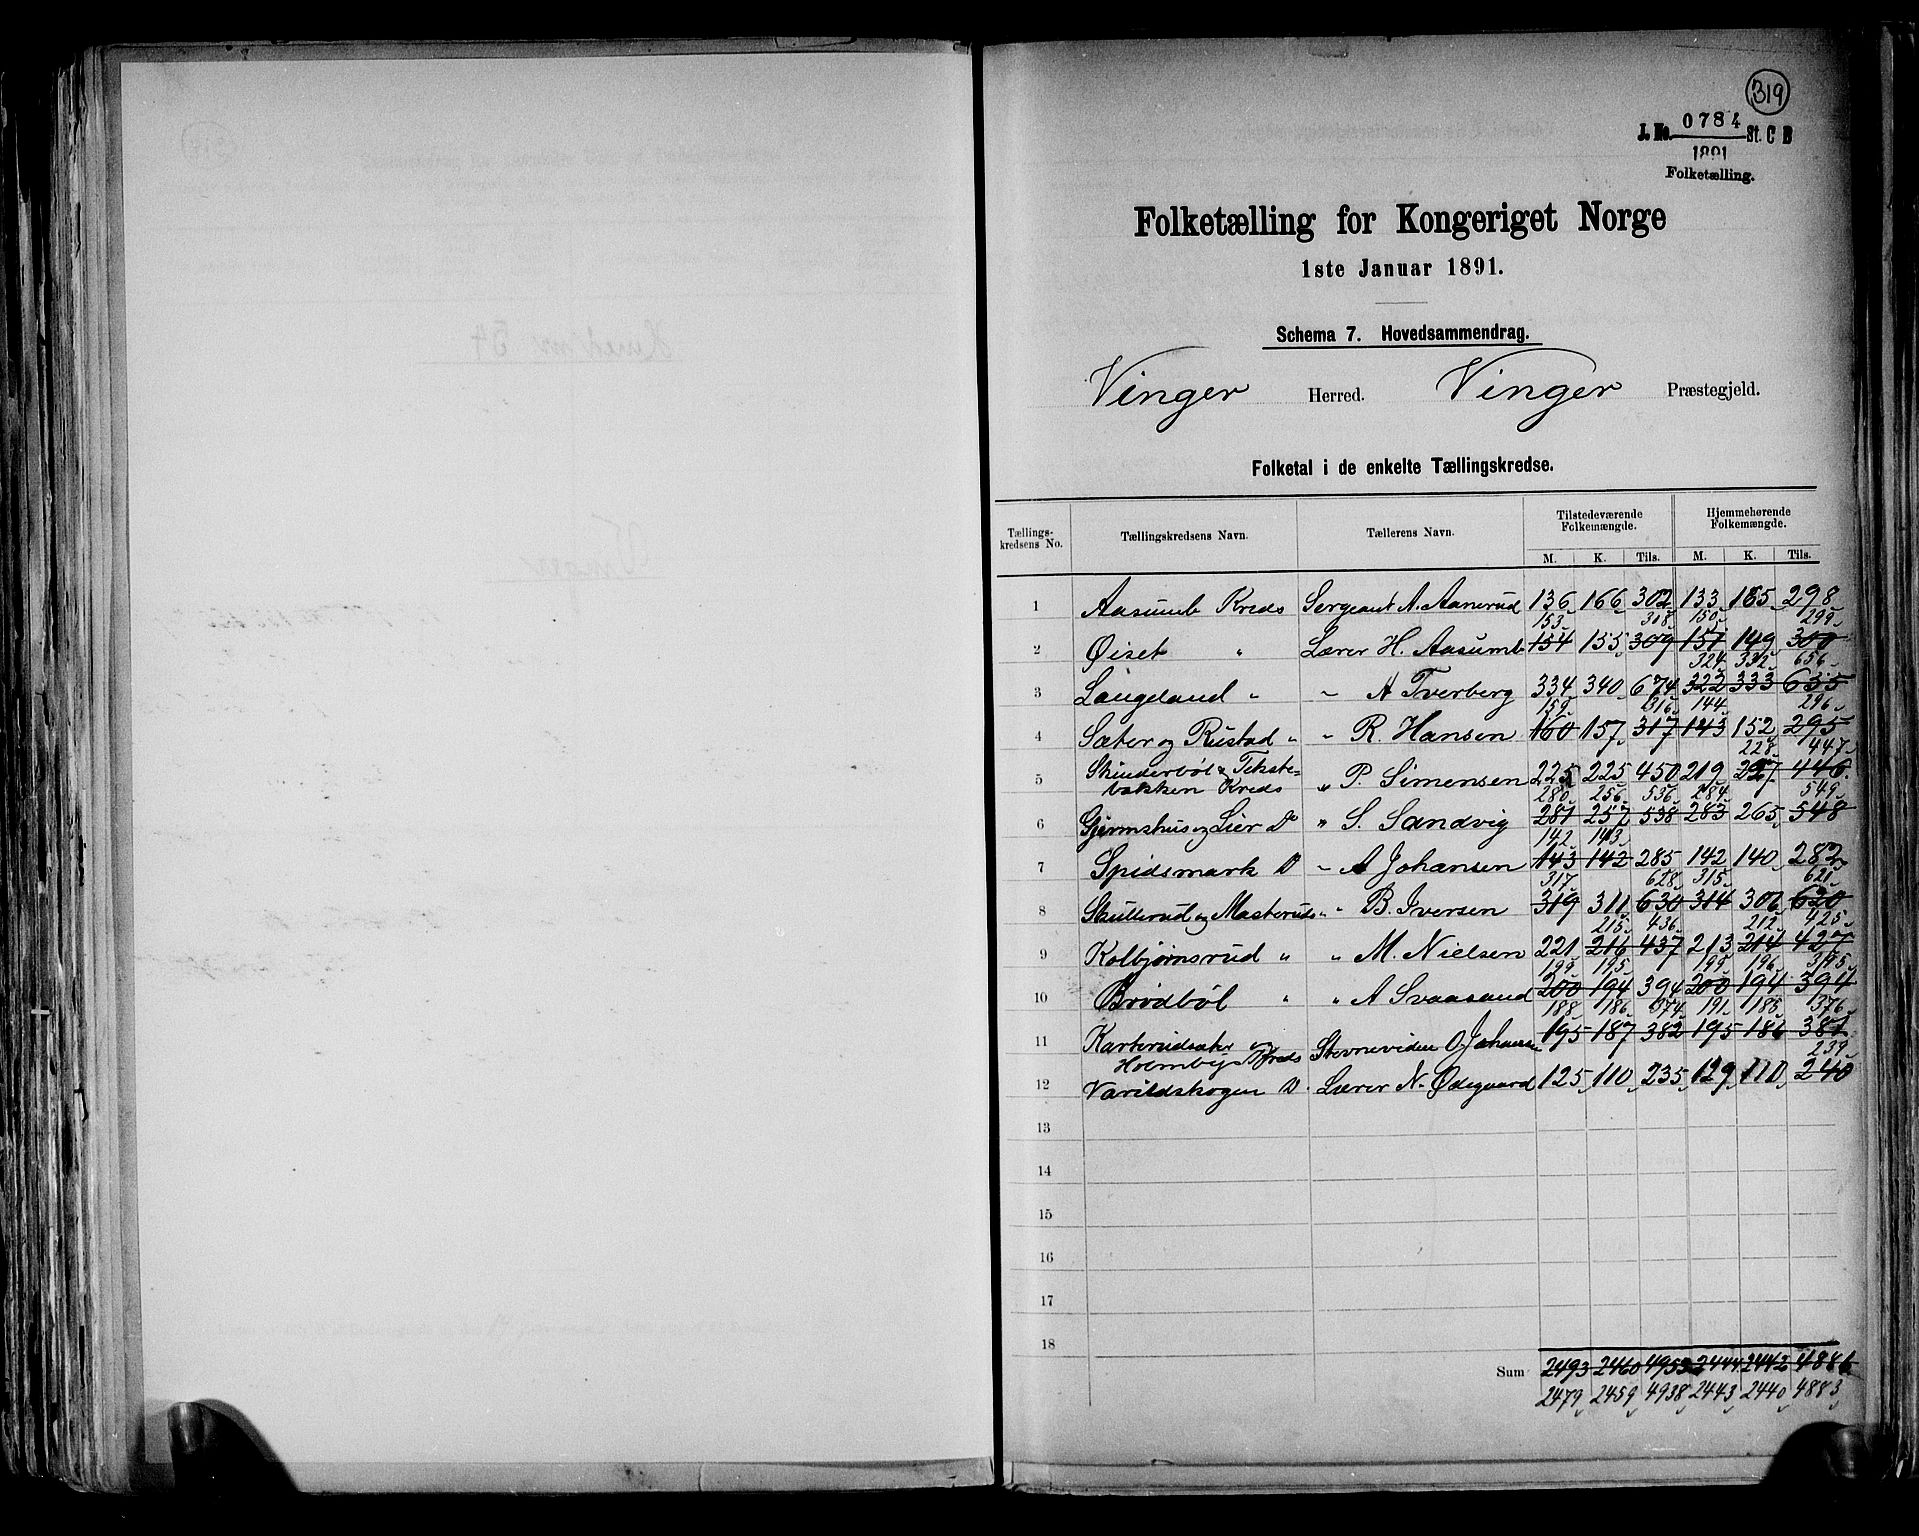 319
J. No. 0784 St. C B
1891
Folketælling.
Folketælling for Kongeriget Norge
1ste Januar 1891.
Schema 7. Hovedsammendrag.
Vinger Herred. Vinger Præstegjeld.
Folketal i de enkelte Tællingskredse.
Tællings-kredsens No. Tællingskredsens Navn. Tællerens Navn. Tilstedeværende Folkemængde. Hjemmehørende Folkemængde.
M. K. Tils. M. K. Tils.
1 Aasumb Kreds Sergeant A. Aanerud 136 166 302 133 165 298
153 308 150 299
2 Øiset " Lærer H. Aasumb 154 155 309 151 149 300
324 332 656
3 Langeland " " A Tverberg 334 340 674 322 333 655
159 316 144 296
4 Sæter og Rustad " " R. Hansen 160 157 317 143 152 295
228 447
5 Skinderböl & Tekste= " P. Simensen 225 225 450 219 227 446
bakken Kreds
280 256 536 284 549
6 Gjermshus og Lier Do " S. Sandvig 281 257 538 283 265 548
142 143
7 Spidsmark D " A Johansen 143 142 285 142 140 282
317 628 315 621
8 Skullerud og Masterud " " B. Iversen 319 311 630 314 306 620
215 436 212 425
9 Kolbjørnsrud " " M. Nielsen 221 216 437 213 214 427
199 195 199 196 395
10 Brødböl " " A Svaasand 200 194 394 200 194 394
188 186 374 191 185 376
11 og Stevnevidne O Johansen 195 187 382 195 186 381
Holmby Kreds
239
12 Varildskogen D. Lærer N. Ødegaard 125 110 235 129 110 240
13
14
15
16
17
18
Sum 2493 2460 4953 2444 2442 4886
2479 2459 4938 2443 2440 4883